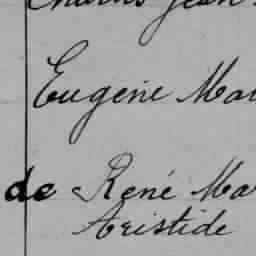 Jean
Eugène Ma
de René Ma
Aristide